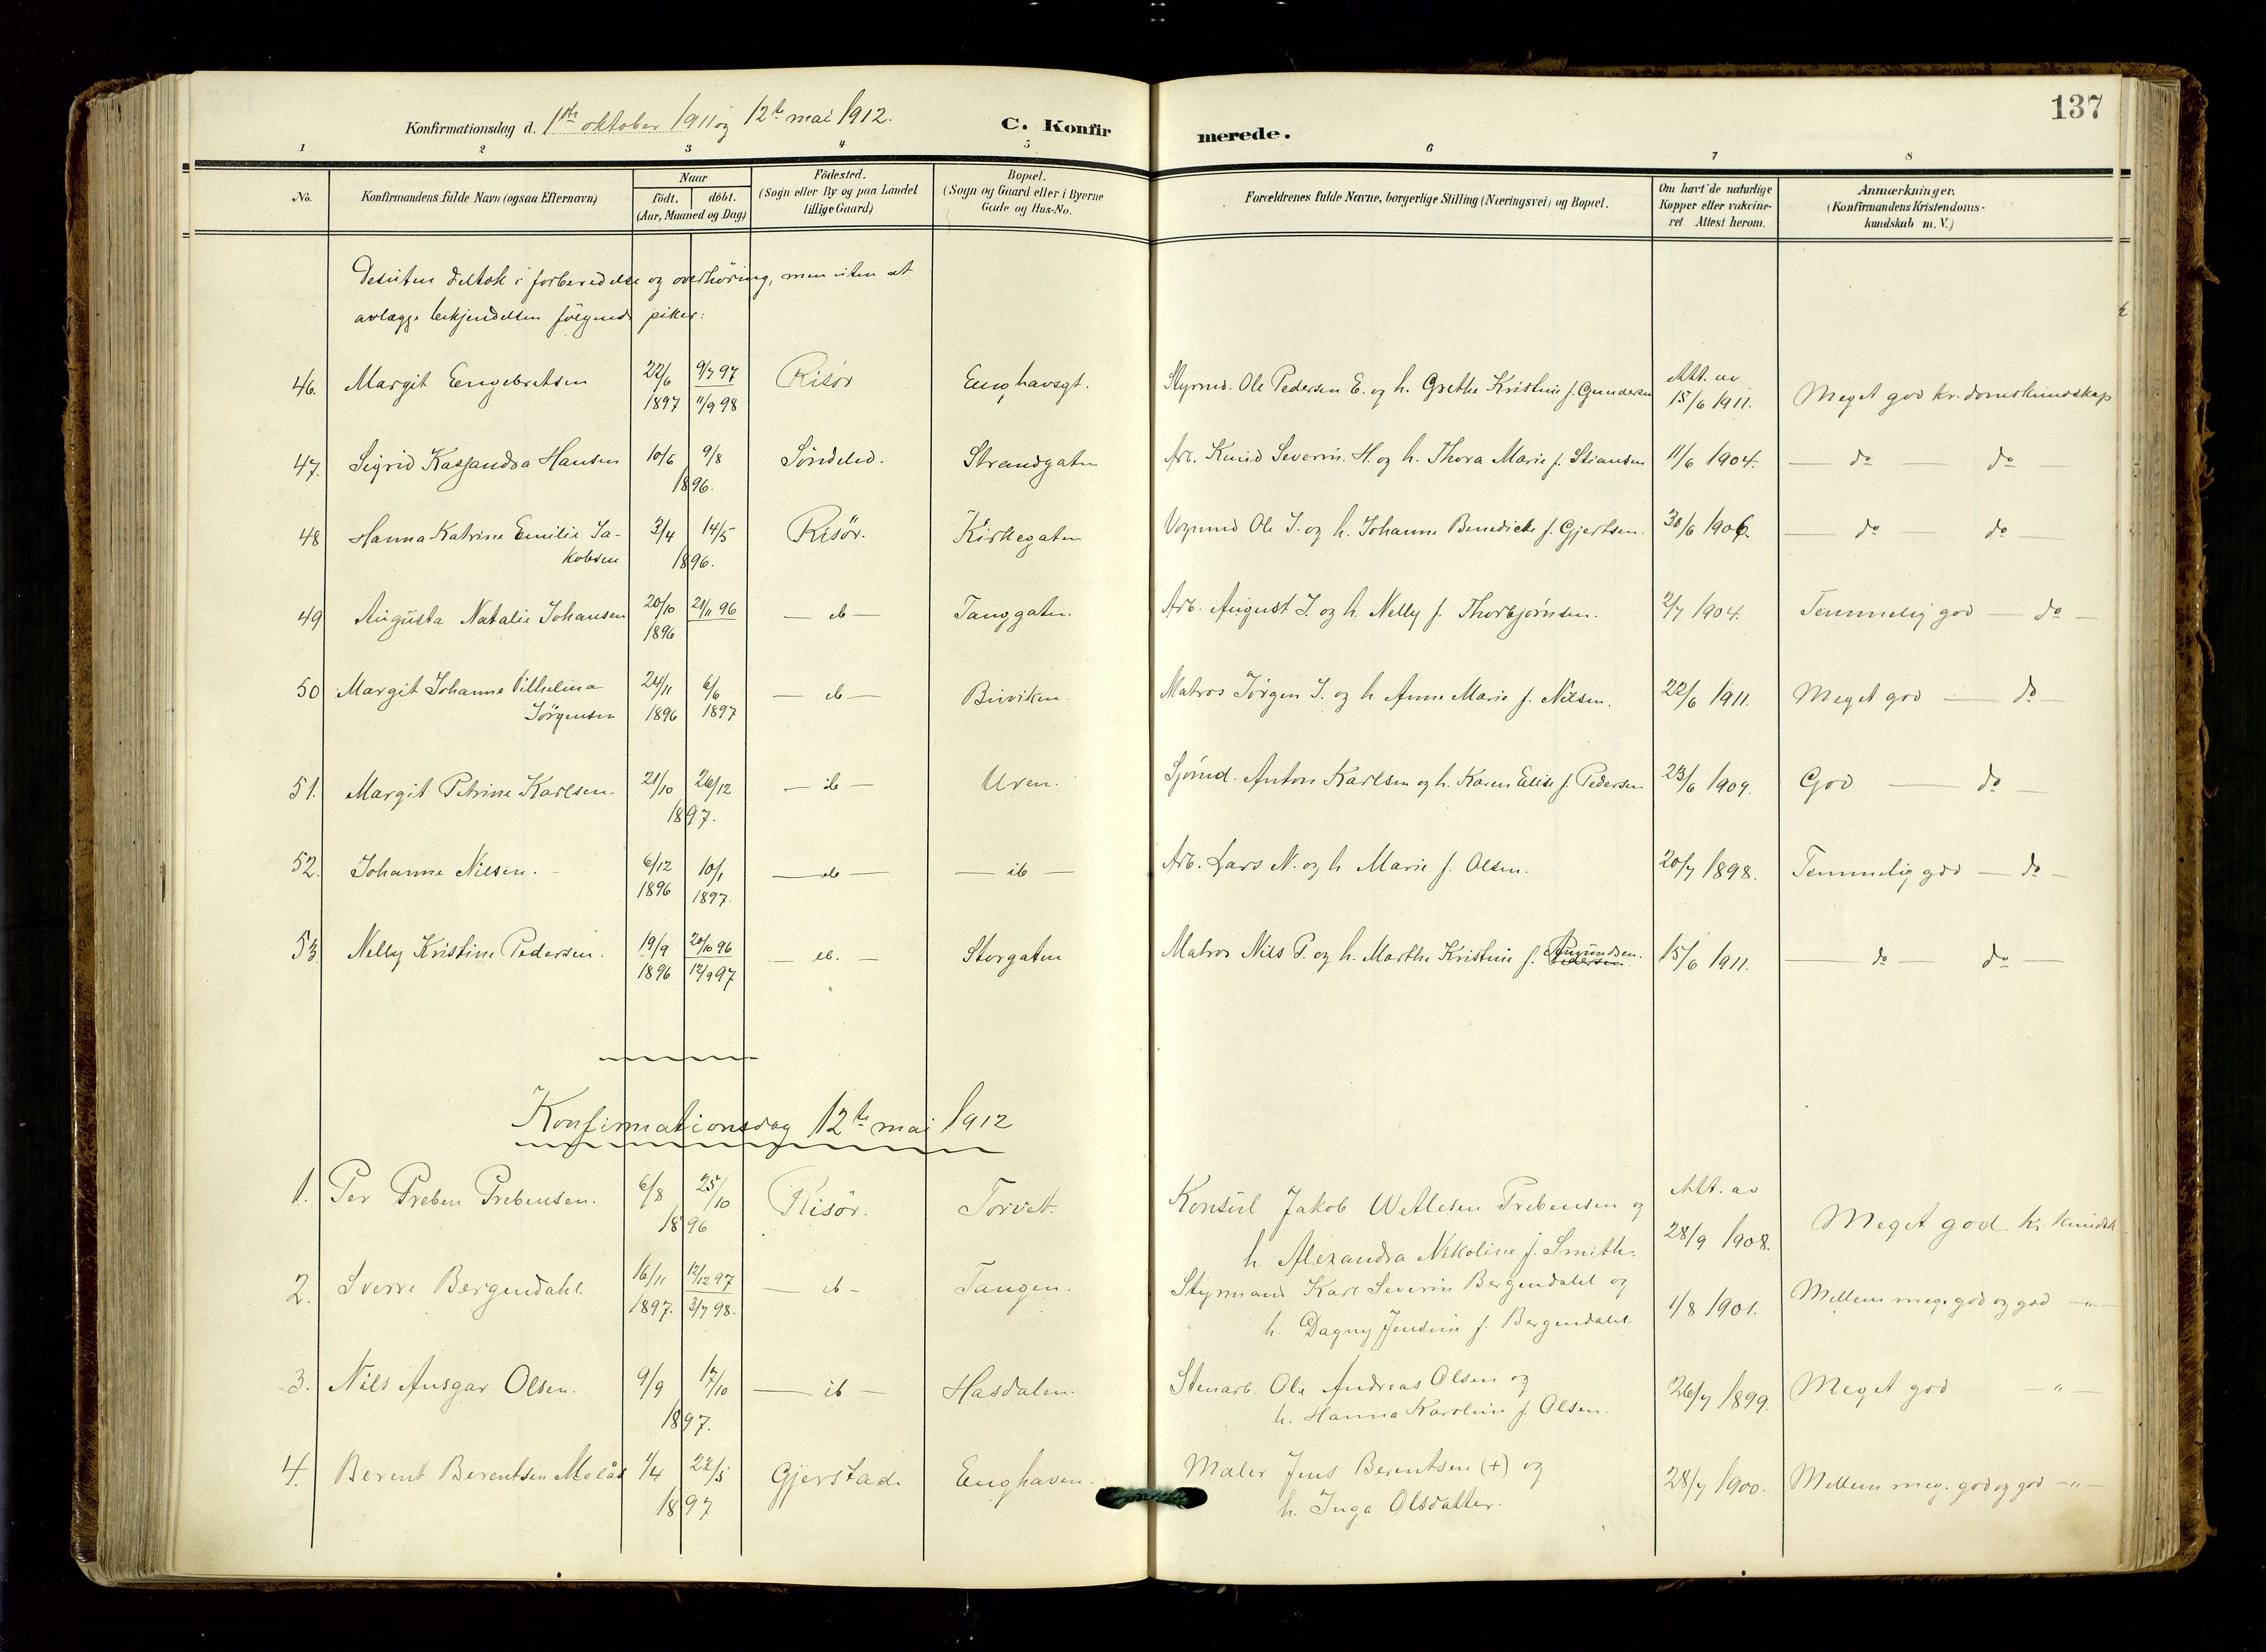 137
Konfirmationsdag d. 1ste oktober 1911 og 12te mai 1912.
C. Konfirmerede.
1 2 3 4 5 6 7 8
No.
Konfirmandens fulde Navn (ogsaa Efternavn)
Naar
födt. döbt.
(Aar, Maaned og Dag)
Födested.
(Sogn eller By og paa Landet
tillige Gaard)
Bopæl.
(Sogn og Gaard eller i Byerne
Gade og Hus-No.
Forældrenes fulde Navne, borgerlige Stilling (Næringsvei) og Bopæl.
Om havt de naturlige
Kopper eller vakcine-
ret Attest herom.
Anmærkninger.
(Konfirmandens Kristendoms-
kundskab m. V.)
Desuten deltok i forberedelse og overhöring, men uten at
avlægge bekjendelsen fölgende piker:
46. Margit Engebretsen 22/6 1897 9/7 97 11/9 98 Risör Enghavsgt. Styrmd. Ole Pedersen E. og h. Grethe Kristine f. Gundersen Att. av 15/6 1911. Meget god kr.domskundskap
47. Sigrid Kassandra Hansen 10/6 9/8 1896. Söndeled. Strandgaten Arb. Knud Severin H. og h. Thora Marie f. Stiansen 11/6 1904. — do — do —
48 Hanna Katrine Emilie Ja-
kobsen 3/4 14/5 1896. Risör. Kirkegaten Vognmd Ole J. og h. Johanne Benedicte f. Gjertsen. 30/6 1906. — do — do —
49 Augusta Natalie Johansen 20/10 1896 21/11 96 — ib — Tanggaten. Arb. August J. og h. Nelly f. Thorbjørnsen. 2/7 1904. Temmelig god — do —
50 Margit Johanne Vilhelma
Jörgensen 24/11 1896 6/6 1897 — ib — Buviken. Matros Jörgen J. og h Anne Marie f. Nilsen. 22/6 1911. Meget god — do —
51. Margit Petrine Karlsen. 21/10 26/12 1897. — ib — Uren. Sjömd. Anton Karlsen og h. Karen Elise f. Pedersen 23/6 1909. God — do —
52. Johanne Nilsen. 6/12 1896 10/1 1897. — ib — — ib — Arb. Lars N. og h Marie f. Olsen. 20/7 1898. Temmelig god — do —
53. Nelly Kristine Pedersen. 19/9 1896 20/10 96 12/9 97 — ib. — Storgaten Matros Nils P. og h. Marthe Kristine f. Pedersen 15/6 1911. — do — do —
Konfirmationsdag 12te mai 1912
1. Per Preben Prebensen. 6/8 25/10 1896 Risör. Torvet. Konsul Jakob Wetlesen Prebensen og
h. Alexandra Nikoline f. Smith. Att. av 28/9 1908. Meget god kr. kundsk
2. Sverre Bergendahl. 16/11 1897. 12/12 97 3/7 98. — ib — Tangen. Styrmand Karl Severin Bergendahl og
h. Dagny Jensine f. Bergendahl. 1/8 1901. Mellem meg. god og god — " —
3. Nils Ansgar Olsen. 9/9 17/10 1897. — ib — Hasdalen. Stenarb. Ole Andreas Olsen og
h. Hanna Karoline f. Olsen. 26/7 1899. Meget god — " —
4. Berent Berentsen Melås 1/4 22/5 1897 Gjerstad. Enghaven. Maler Jens Berentsen (+) og
h. Inga Olsdatter. 28/7 1900. Mellem meg. god og god — " —